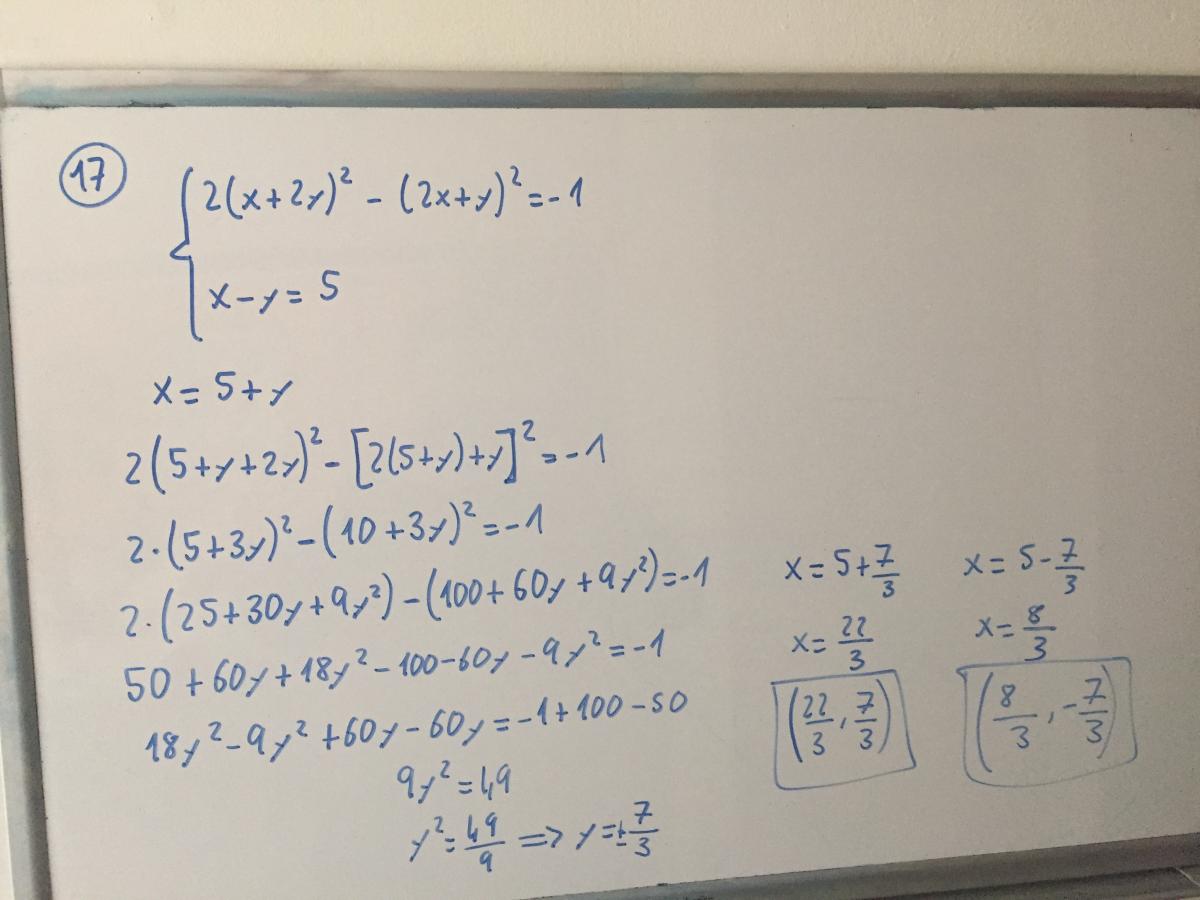 17
2(x+2y)² - (2x+y)² = -1
x - y = 5
x = 5 + y
2(5+y+2y)² - [2(5+y)+y]² = -1
2·(5+3y)² - (10+3y)² = -1
2·(25+30y+9y²) - (100+60y+9y²) = -1
50 + 60y + 18y² - 100 - 60y - 9y² = -1
18y² - 9y² + 60y - 60y = -1 + 100 - 50
9y² = 49
y² = 49/9 => y = ± 7/3
x = 5 + 7/3
x = 22/3
(22/3, 7/3)
x = 5 - 7/3
x = 8/3
(8/3, -7/3)